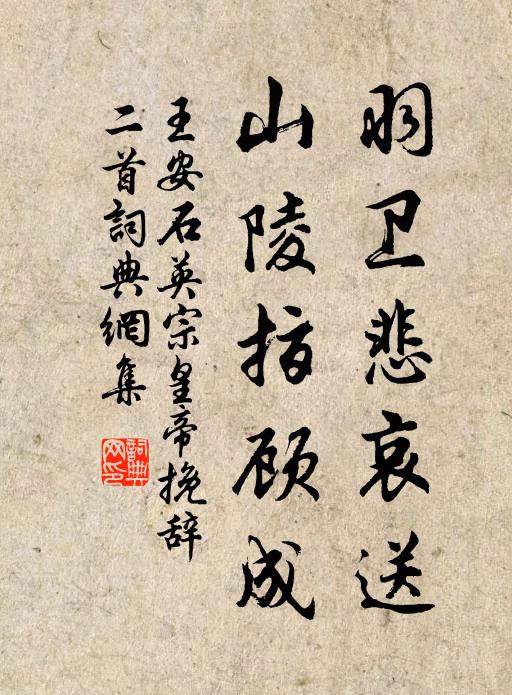 羽卫悲哀送
山陵指顾成
王安石英宗皇帝挽辞
二首詞典網集
詞典
网印